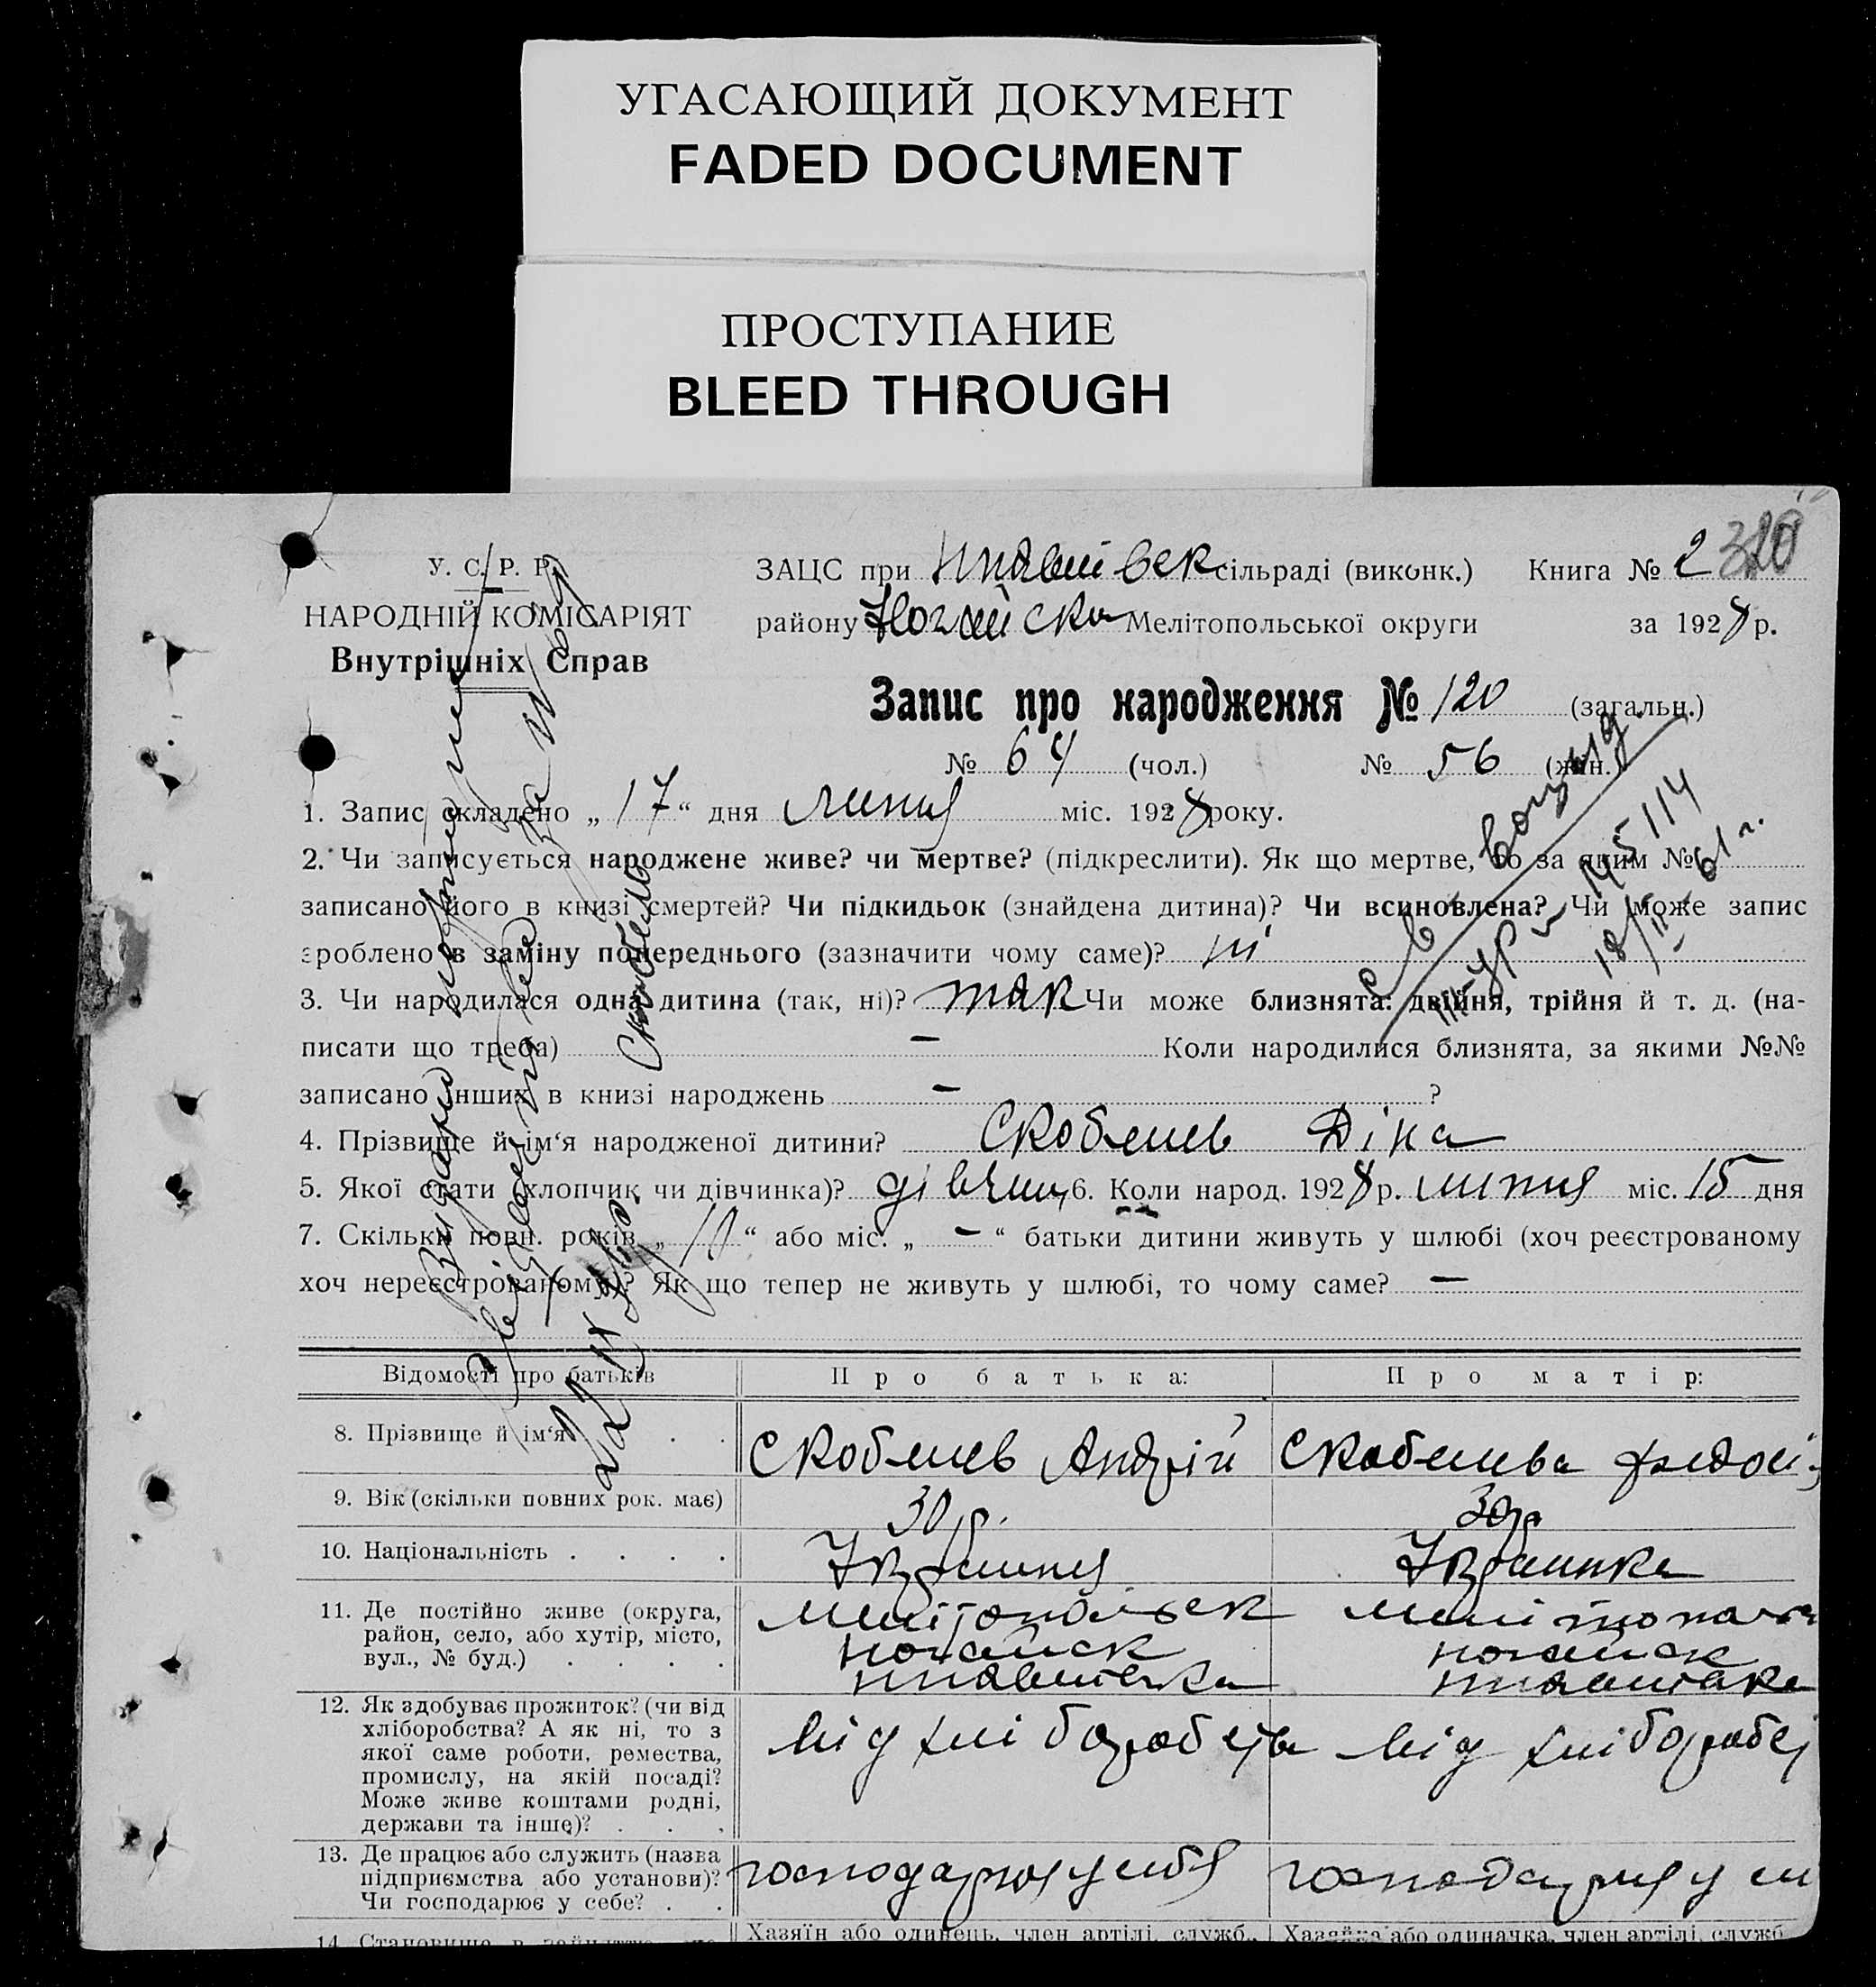 УГАСАЮЩИЙ ДОКУМЕНТ
FADED DOCUMENT
ПРОСТУПАНИЕ
BLEED THROUGH
320
У. С. Р. Р.
НАРОДНІЙ КОМІСАРІЯТ
Внутрішніх Справ
ЗАЦС при сільраді (виконк.) Книга № 2
району Ногайска Мелітопольської округи за 1928 р.
Запис про народження № 120 (загальн.)
№ 64 (чол.) № 56 (жін.)
1. Запис складено „ 17 “ дня липня міс. 1928 року.
2. Чи записується народжене живе? чи мертве? (підкреслити). Як що мертве, то за яким №
записано його в книзі смертей? Чи підкидьок (знайдена дитина)? Чи всиновлена? Чи може запис
зроблено в заміну попереднього (зазначити чому саме)? ні
3. Чи народилася одна дитина (так, ні)? так Чи може близнята: двійня, трійня й т. д. (на-
писати що треба) — Коли народилися близнята, за якими №№
записано інших в книзі народжень — ?
4. Прізвище й ім‘я народженої дитини? Скоблев Діна
5. Якої стати (хлопчик чи дівчинка)? дівчин 6. Коли народ. 1928 р. липня міс. 15 дня
7. Скільки повн. років „ 10 “ або міс. „ — “ батьки дитини живуть у шлюбі (хоч реєстрованому
хоч нереєстрованому)? Як що тепер не живуть у шлюбі, то чому саме? —
145114
18/II-61 г.
Відомості про батьків Про батька: Про матір:
8. Прізвище й ім‘я . . . Скоблев Андрій Скоблева Федосі
9. Вік (скільки повних рок. має) 30 р. 30 р
10. Національність . . . . Україниц Українка
11. Де постійно живе (округа, Мелітопольск Мелітопол
район, село, або хутір, місто, ногайск ногайск
вул., № буд.) . . . .
12. Як здобуває прожиток? (чи від
хліборобства? А як ні, то з від хліборобства від хлібороб
якої саме роботи, ремества,
промислу, на якій посаді?
Може живе коштами родні,
держави та інше)? . . .
13. Де працює або служить (назва
підприємства або установи)? господарює у себя господарює у
Чи господарює у себе? . .
14. Становище в
Хазяїн або одинець, член артілі, служб. Хазяйка або одиначка, член артілі, служб